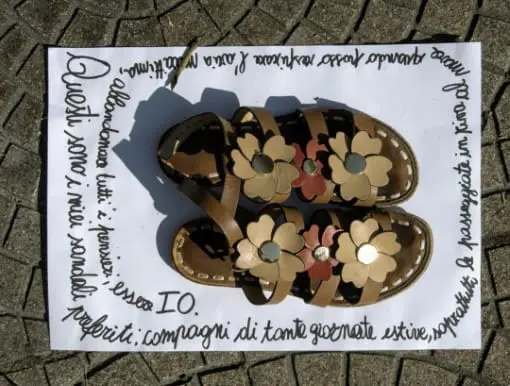 Questi sono i miei sandali
preferiti: compagni di tante giornate estive, soprattutto
le passeggiate in riva al mare
quando posso respirare l'aria marittima,
abbandonare tutti i pensieri, essere IO.